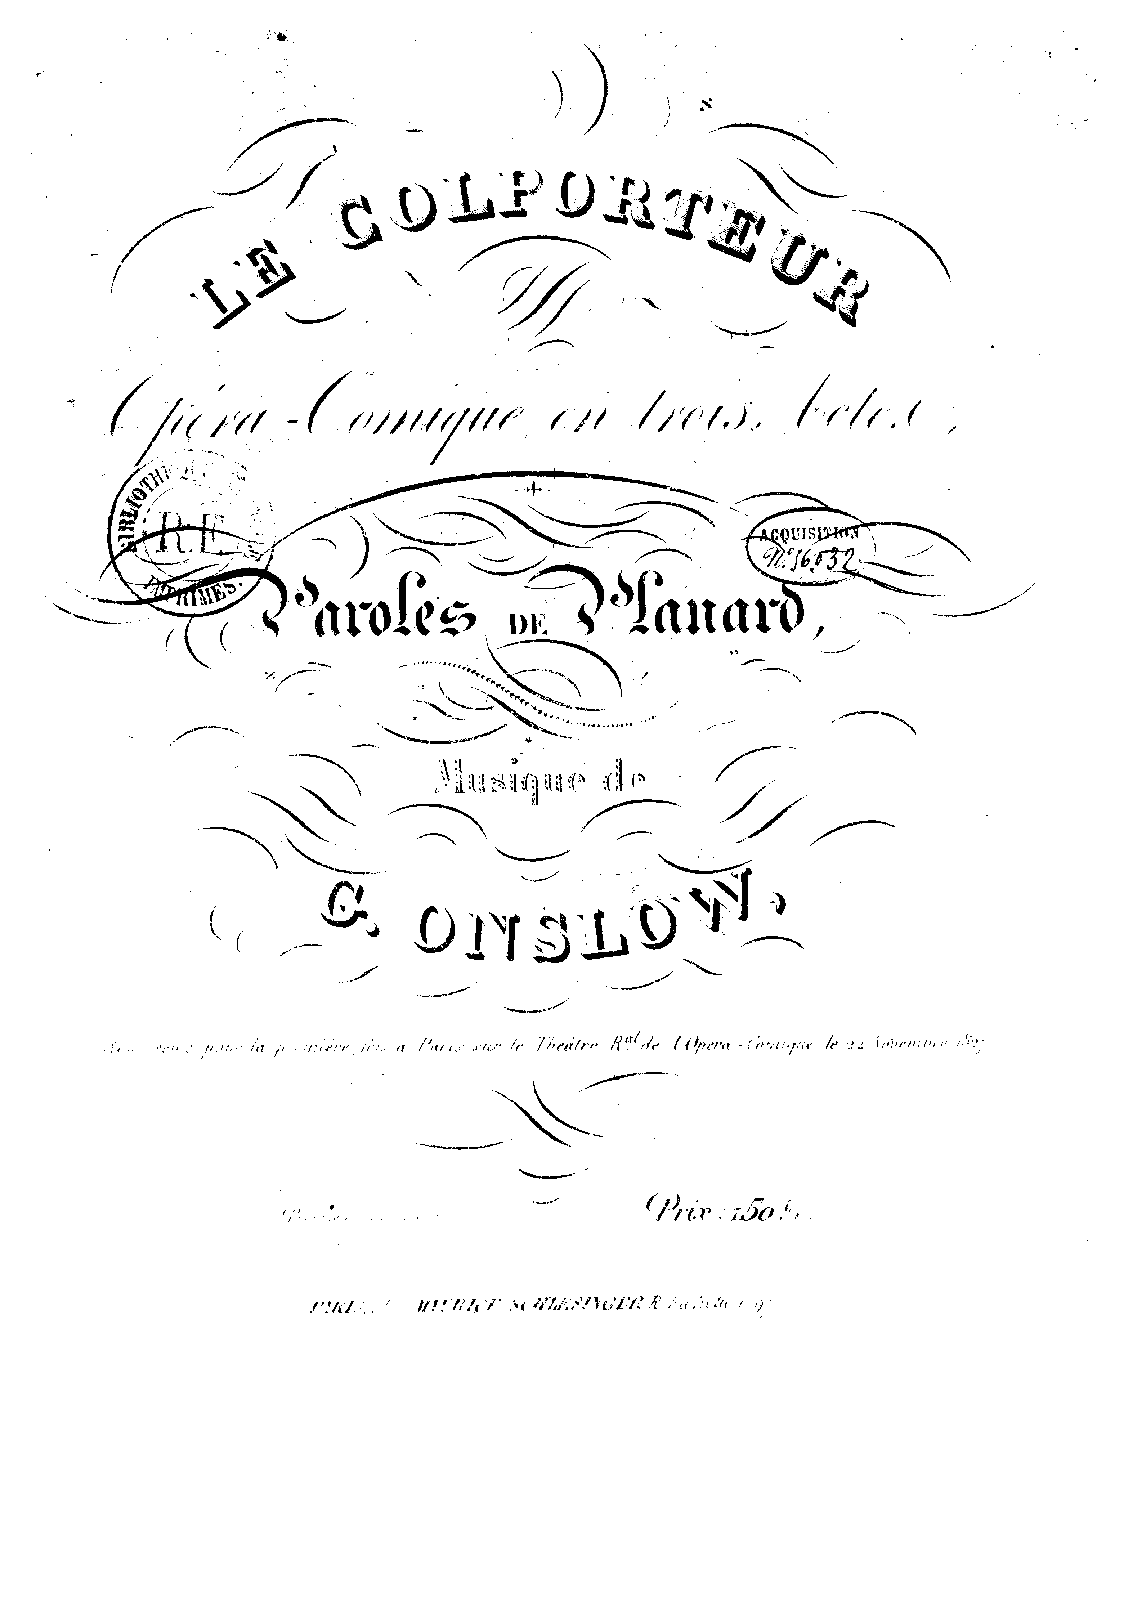 LE COLPORTEUR
Opéra-Comique en trois Actes,
BIBLIOTHE
R.F.
IMPRIMÉS.
ACQUISITION
Paroles DE Planard,
Musique de
G. ONSLOW,
pour la première fois a Paris sur le Théâtre Ral de l'Opéra-Comique le 22 Novembre 1827
Prix : 150 fr.
MAURICE SCHLESINGER